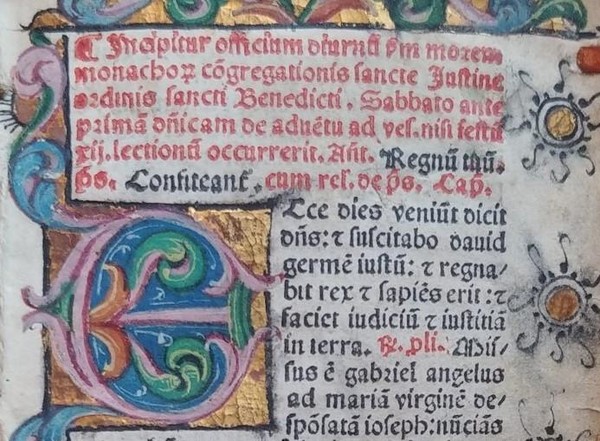 ¶ Incipitur officium diurnū ẜm morem
monachoꝝ cōgregationis sancte Justine
ordinis sancti Benedicti. Sabbato ante
primā dñicam de aduētu ad ves. nisi festū
xij. lectionū occurrerit. Añt. Regnū tuū.
ps. Confiteant̃. cum rel. de ps. Cap.
Ecce dies veniūt dicit
dñs: ⁊ suscitabo dauid
germē iustū: ⁊ regna/
bit rex ⁊ sapiēs erit: ⁊
faciet iudiciū ⁊ iustitiā
in terra. ℞. pli. Mis/
sus ē gabriel angelus
ad mariā virginē de/
spōsatā ioseph: nūciās